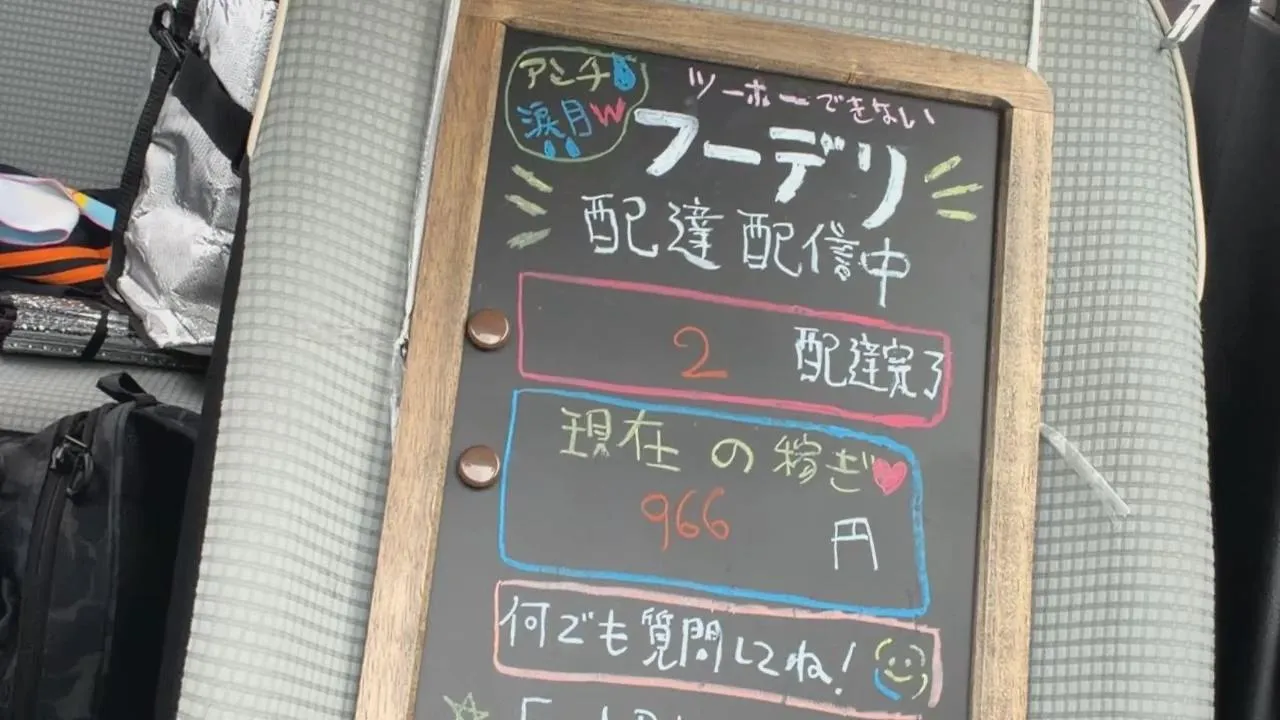 アンチ
涙月W
ツーホーできない
フーデリ
配達配信中
2 配達完了
現在の稼ぎ
966 円
何でも質問してね!